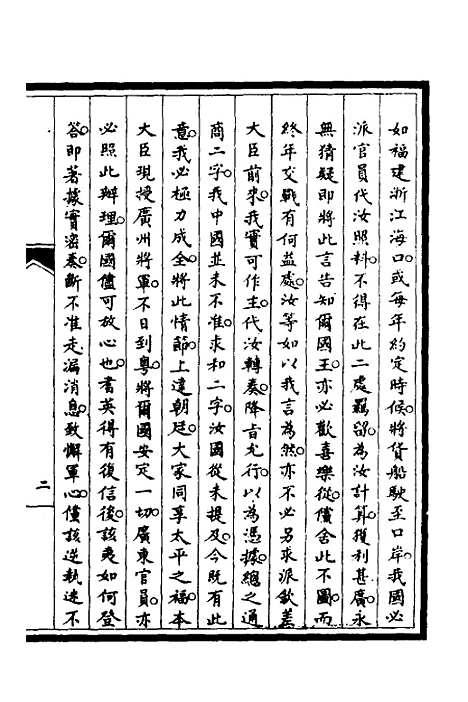 如福建浙江海口。或每年約定時候。將貨船駛至口岸。我國必
派官員代汝照料。不得在此二處羈留。為汝計算。獲利甚廣。永
無猜疑。即將此言告知爾國王。亦必歡喜樂從。儻舍此不圖。而
終年交戰。有何益處。汝等如以我言為然。亦不必另求派欽差
大臣前來。我實可作主。代汝轉奏。降旨允行。以為憑據。總之通
商二字。我中國並未不准。求和二字。汝國從未提及。今既有此
意。我必極力成全。將此情節。上達朝廷。大家同享太平之福。本
大臣現授廣州將軍。不日到粵。將爾國安定一切。廣東官員。亦
必照此辦理。爾國儘可放心也。書英得有復信後。該夷如何登
答。即著據實密奏。斷不准走漏消息。致懈軍心。儻該逆執迷不
二